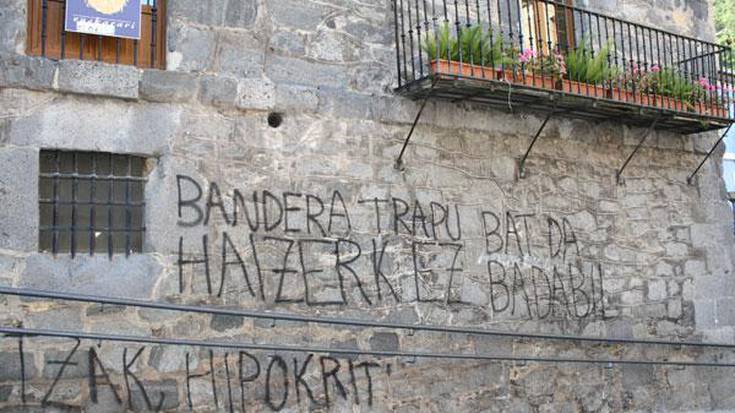 BANDERA TRAPU BAT DA
HAIZERK EZ BADABIL
TZAK, HIPOKRIT